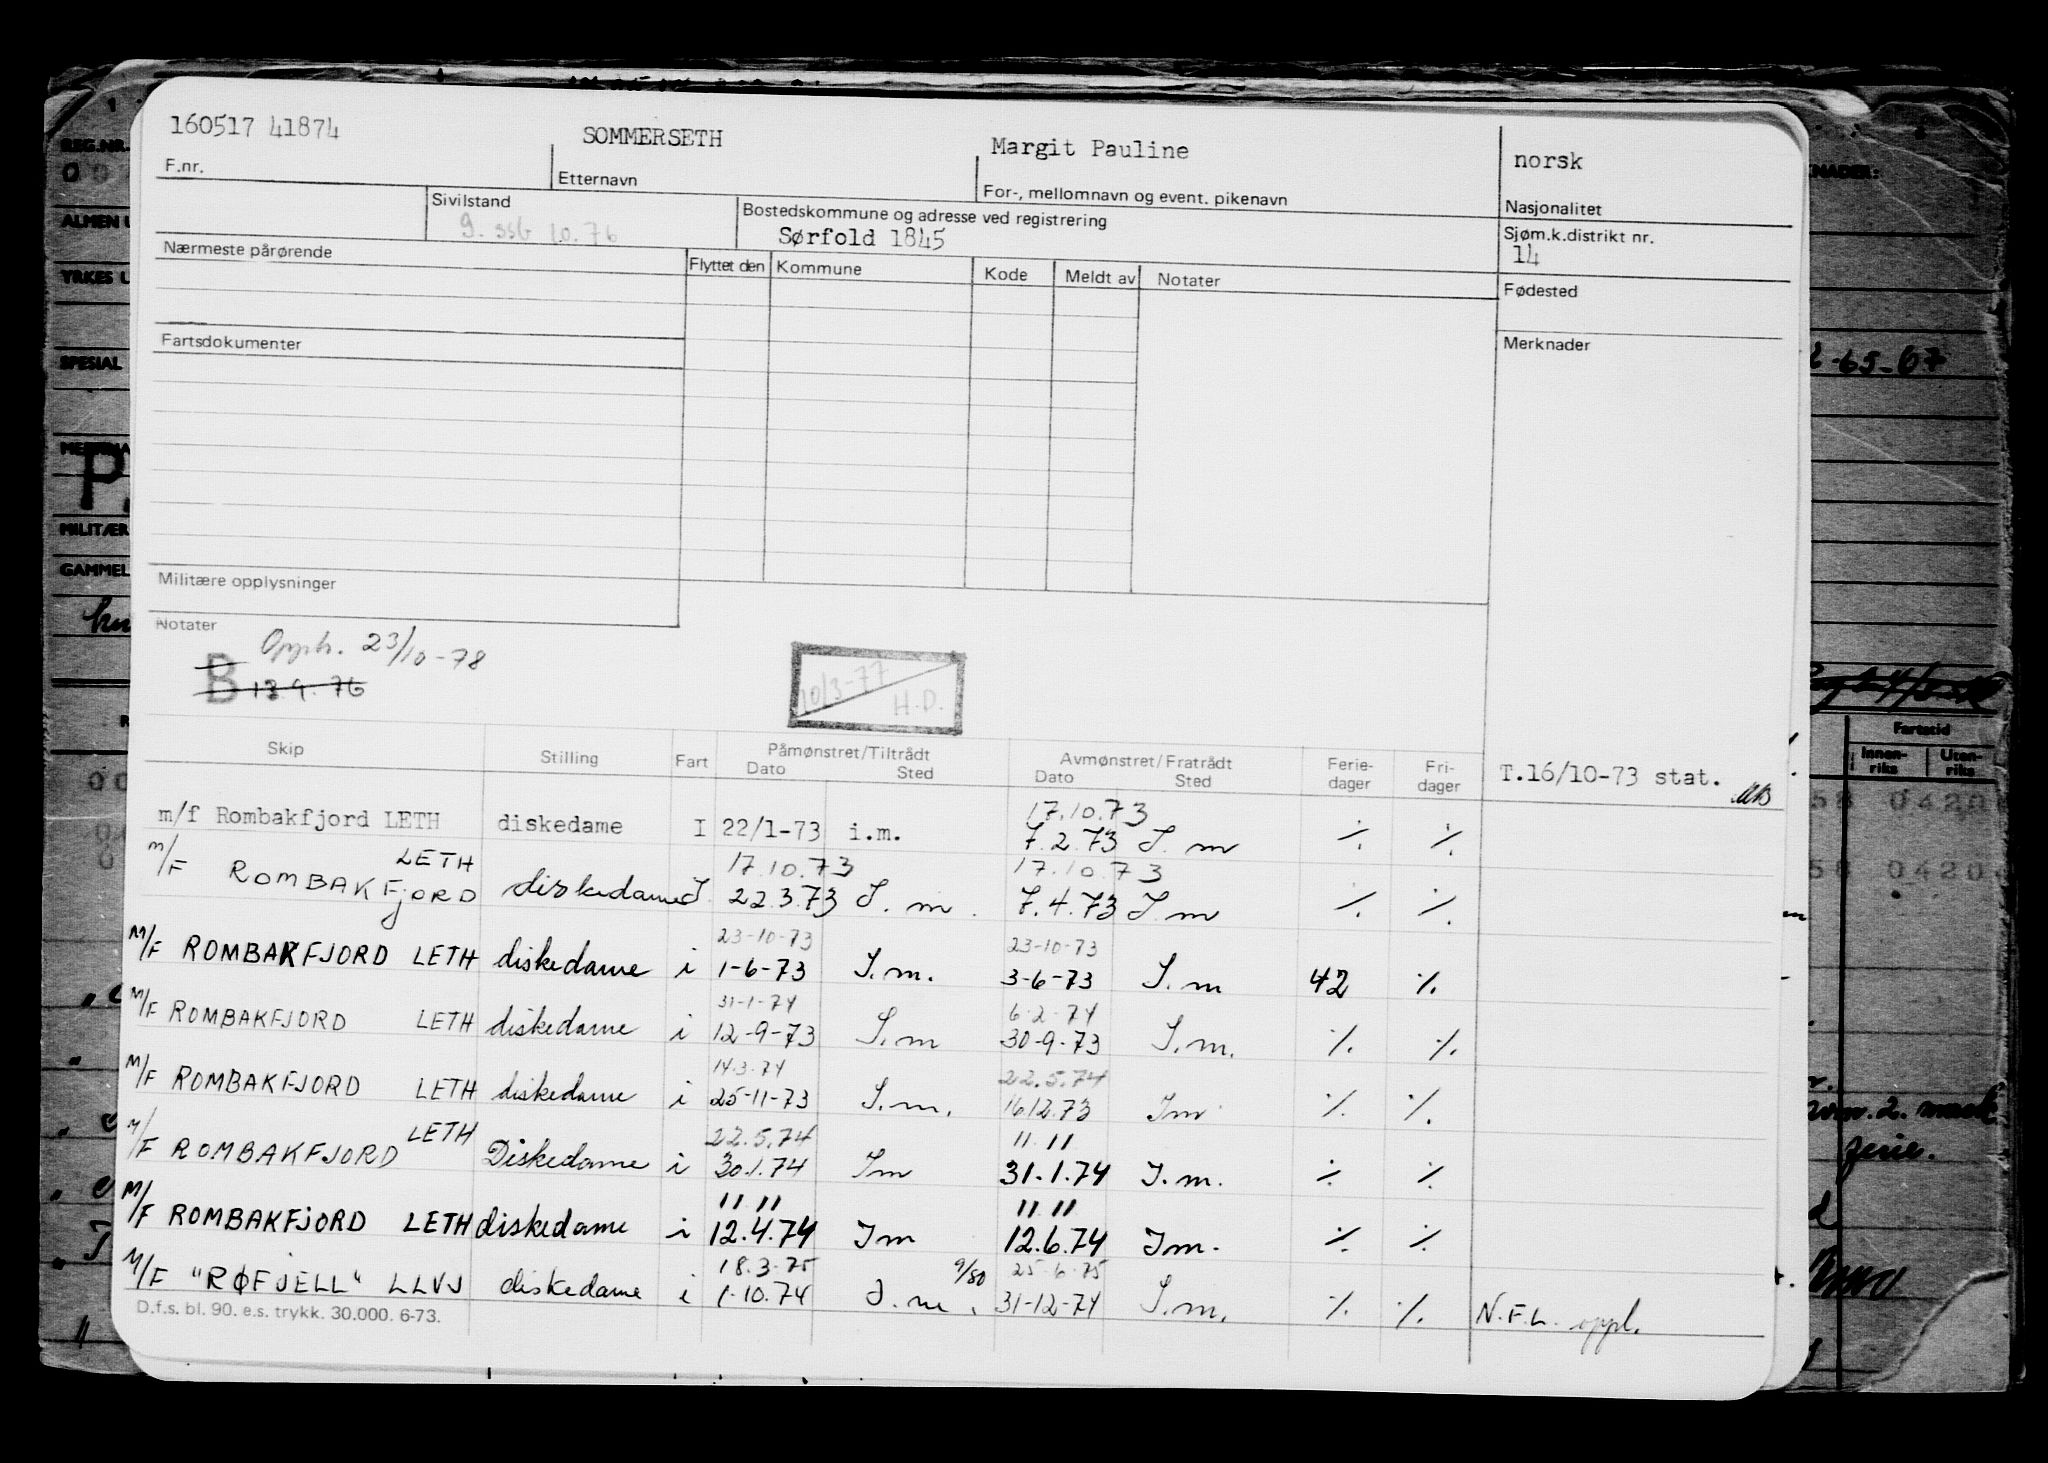 160517 41874 SOMMERSETH Margit Pauline norsk
F.nr. Etternavn For-, mellomnavn og event. pikenavn Nasjonalitet
Sivilstand Bostedskommune og adresse ved registrering Sjøm.k.distrikt nr.
g. ssb 10.76 Sørfold 1845 14
Nærmeste pårørende Flyttet den Kommune Kode Meldt av Notater Fødested
Fartsdokumenter Merknader
Militære opplysninger
Notater
Opph. 23/10-78
B 13.9.76
10/3-77 H.D.
Skip Stilling Fart Påmønstret/Tiltrådt Avmønstret/Fratrådt Ferie-dager Fri-dager T.16/10-73 stat.
Dato Sted Dato Sted
17.10.73
m/f Rombakfjord LETH diskedame I 22/1-73 i.m. 7.2.73 I.m ٪ ٪
LETH 17.10.73 17.10.73
M/F ROMBAKFjORD diskedame I. 22.3.73 I.m. 7.4.73 I m ٪ ٪
23-10-73 23-10-73
M/F ROMBAKFJORD LETH diskedame i 1-6-73 I.m. 3-6-73 I.m 42 ٪
31-1-74 6-2-74
M/F ROMBAKFJORD LETH diskedame i 12-9-73 I.m 30-9-73 I.m. ٪ ٪
14-3-74 22.5.74
M/F ROMBAKFJORD LETH diskedame i 25-11-73 I.m. 16.12.73 Im ٪ ٪
LETH 22.5.74 11 11
M/F ROMBAKFJORD Diskedame i 30.1.74 Im 31.1.74 I.m. ٪ ٪
11 11 11 11
M/F ROMBAKFJORD LETH diskedame i 12.4.74 Im 12.6.74 Im. ٪ ٪
18.3.75 9/80 25-6-75
M/F "RØFJELL" LLVJ diskedame i 1.10.74 I.m. 31-12-74 I.m. ٪ ٪ N.F.L. oppl.
D.f.s. bl. 90. e.s. trykk. 30.000. 6-73.
REG.NR.
ALMEN
YRKES
SPESIAL
MILITÆR
GAMMEL
65-67
Fartstid
Innen-riks Uten-riks
58 0420
58 0420
ferie.